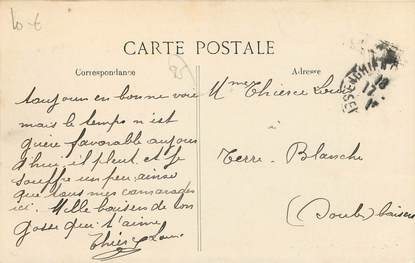 10 €
CARTE POSTALE
Correspondance
Adresse
25
Toujours en bonne voie
mais le temps n'est
guère favorable aujour
d'hui il pleut et je
souffre un peu, ainsi
que tous mes camarades
ici. Mille baisers de ton
gosse qui t'aime
Thiésce Louis
Mme Thiésce Louis
à
Terre-Blanche
(Doubs) baisers